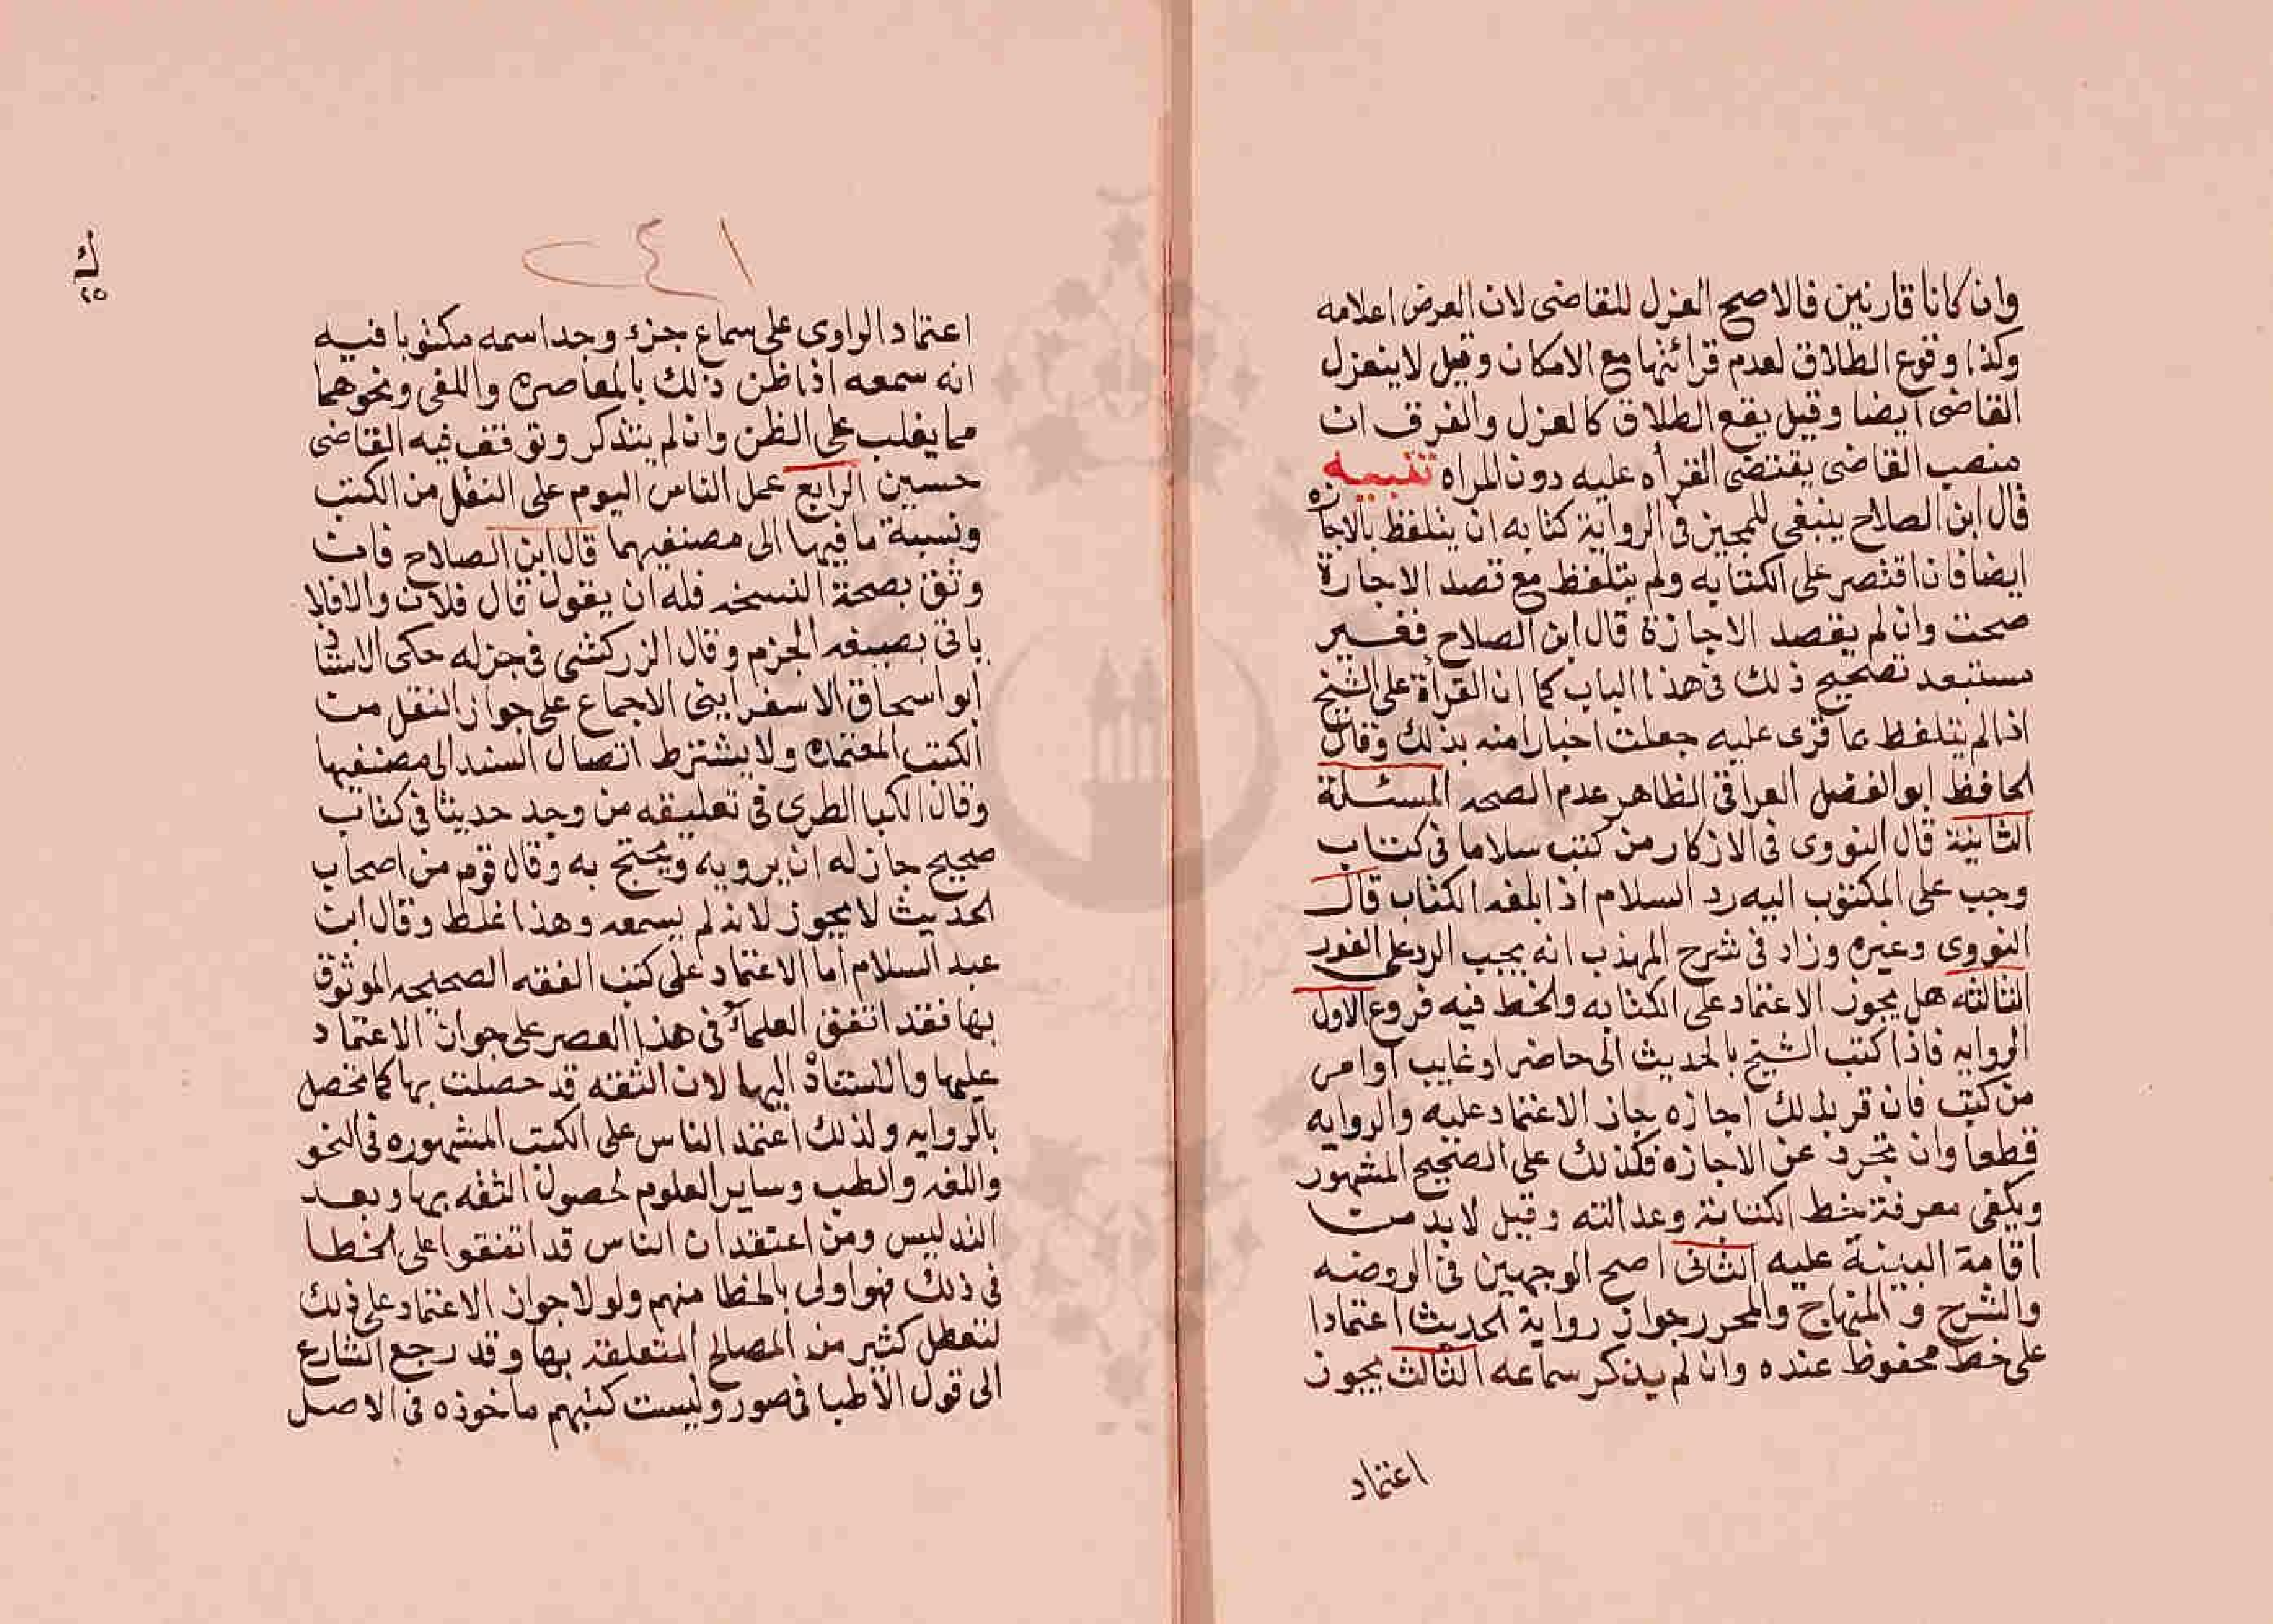 وان كانا قارئين فالاصح العزل للقاضى لان الغرض اعلامه
وكذا وقوع الطلاق لعدم قرائتها مع الامكان وقيل لا ينعزل
القاضى ايضا وقيل يقع الطلاق كالعزل والفرق ان
منصب القاضى يقتضى القرأه عليه دون المراه تنبيه
قال ابن الصلاح ينبغى للمجيز فى الرواية كتابه ان يتلفظ بالاجازه
ايضا فان اقتصر على الكتابه ولم يتلفظ مع قصد الاجازة
صحت وان لم يقصد الاجازة قال ابن الصلاح فغير
مستبعد تصحيح ذلك فى هذا الباب كما ان القرأة على الشيخ
اذا لم يتلفظ بما قرى عليه جعلت اخبارا منه بذلك وقال
الحافظ ابو الفضل العراقى الظاهر عدم الصحه المسئلة
الثانية قال النووى فى الاذكار من كتب سلاما فى كتاب
وجب على المكتوب اليه رد السلام اذا بلغه الكتاب قال
النووى وغيره وزاد فى شرح المهذب انه يجب الرد على الفور
الثالثه هل يجوز الاعتماد على الكتابه والخط فيه فروع الاول
الروايه فاذا كتب الشيخ بالحديث الى حاضر او غايب او امر
من كتب فان قرن بذلك اجازه جاز الاعتماد عليه والروايه
قطعا وان تجرد عن الاجازه فكذلك على الصحيح المشهور
ويكفى معرفة خط الكتابة وعدالته وقيل لا بد من
اقامة البينة عليه الثانى اصح الوجهين فى الروضه
والشرح و المنهاج والمحرر جواز رواية الحديث اعتمادا
على خط محفوظ عنده وان لم يذكر سماعه الثالث يجوز
اعتماد
١٤٢
ك
٢٥
اعتماد الراوى على سماع جزء وجد اسمه مكتوبا فيه
انه سمعه اذا ظن ذلك بالمعاصره واللقى ونحوهما
مما يغلب على الظن وان لم يتذكر وتوقف فيه القاضى
حسين الرابع عمل الناس اليوم على النقل من الكتب
ونسبة ما فيها الى مصنفيهما قال ابن الصلاح فان
وثق بصحة النسخه فله ان يقول قال فلان والا فلا
ياتى بصيغه الجزم وقال الزركشى فى جزله حكى الاستاذ
ابو اسحاق الاسفراينى الاجماع على جواز النقل من
الكتب المعتمده ولا يشترط اتصال السند الى مصنفيها
وقال الكيا الطبرى فى تعليقه من وجد حديثا فى كتاب
صحيح جاز له ان يرويه ويحتج به وقال قوم من اصحاب
الحديث لا يجوز لانه لم يسمعه وهذا غلط وقال ابن
عبد السلام اما الاعتماد على كتب الفقه الصحيحه الموثوق
بها فقد اتفق العلماء فى هذا العصر على جواز الاعتماد
عليها والاستناد اليها لان الثقه قد حصلت بها كما تحصل
بالروايه ولذلك اعتمد الناس على الكتب المشهوره فى النحو
واللغه والطب وساير العلوم لحصول الثقه بها وبعد
التدليس ومن اعتقد ان الناس قد اتفقوا على الخطا
فى ذلك فهو اولى بالخطا منهم ولولا جواز الاعتماد على ذلك
لتعطل كثير من المصالح المتعلقه بها وقد رجع الشارع
الى قول الأطبا فى صور وليست كتبهم ماخوذه فى الاصل